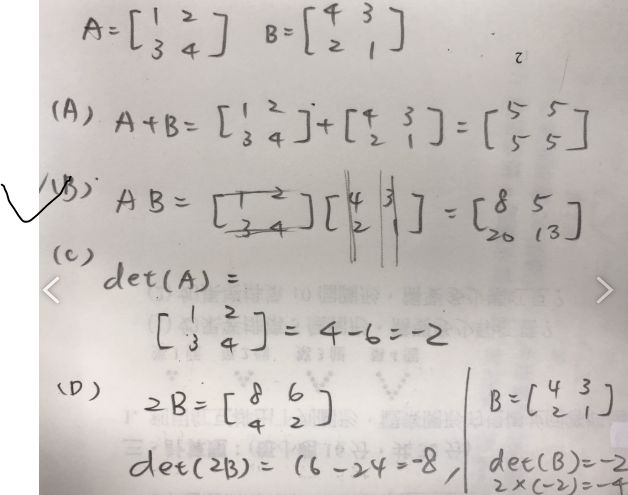 A = [1 2 3 4] B = [4 3 2 1]
(A) A+B = [1 2 3 4] + [4 3 2 1] = [5 5 5 5]
(B) A B = [1 2 3 4] [4 3 2 1] = [8 5 20 13]
(C)
det(A) =
[1 2 3 4] = 4-6 = -2
(D) 2B = [8 6 4 2]
det(2B) = 16-24 = -8,
B = [4 3 2 1]
det(B) = -2
2×(-2) = -4